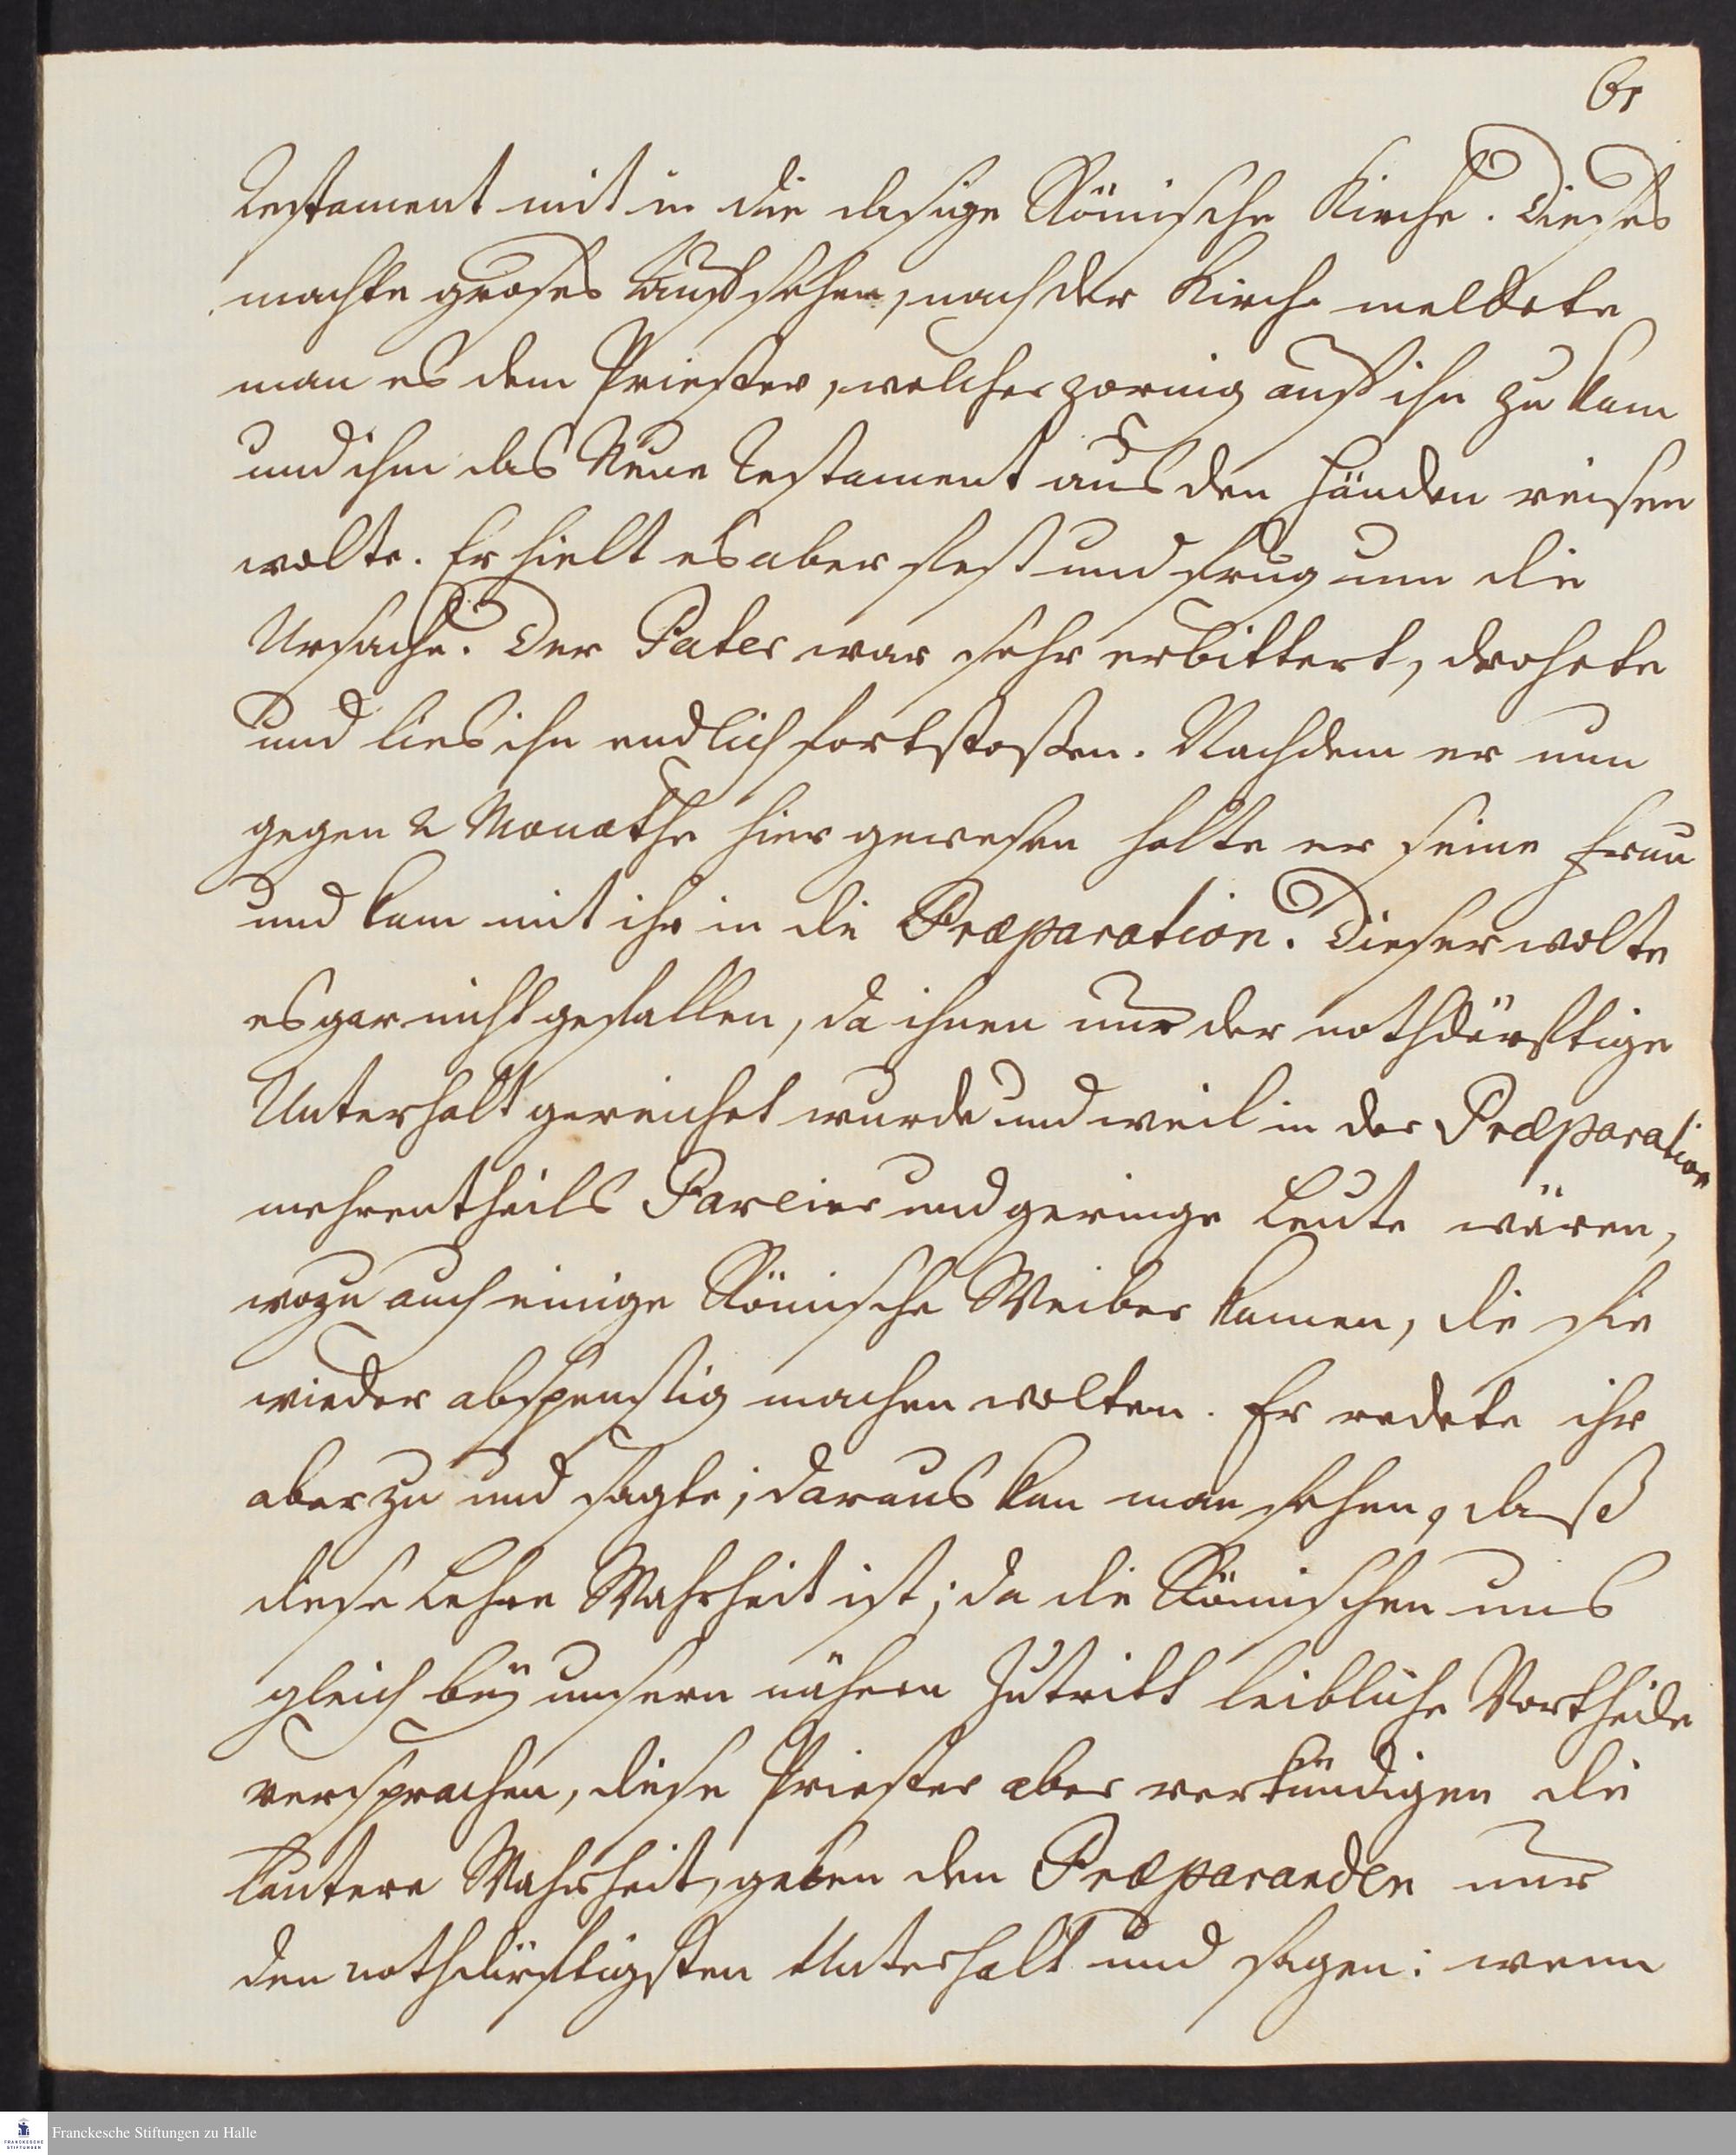 61
Testament mit in die dasige Römische Kirche. Dieses
machte groses Auffsehen, nach der Kirche meldete
man es dem Priester, welcher zornig auff ihn zu kam
und ihm das Neue Testament aus den Händen reisen
wolte. Er hielt es aber fest und frug um die
Ursache. Der Pater war sehr erbittert, drohete
und lies ihn endlich fortstossen. Nachdem er nun
gegen 2 Monathe hier gewesen holte er seine Frau
und kam mit ihr in die Præparation. Dieser wolte
es gar nicht gefallen, da ihnen nur der nothdürftige
Unterhalt gereichet wurde und weil in der Præparation
mehrentheils Pareier und geringe Leute wären,
wozu auch einige Römische Weiber kamen, die sie
wieder abspenstig machen wolten. Er redete ihr
aber zu und sagte; daraus kan man sehen, daß
diese Lehre Wahrheit ist; da die Römischen uns
gleich bey unserm nähern Zutritt leibliche Vortheile
versprachen, diese Priester aber verkündigen die
lautere Wahrheit, geben den Præparanden nur
den nothdürftigsten Unterhalt und sagen: wenn
Franckesche Stiftungen zu Halle